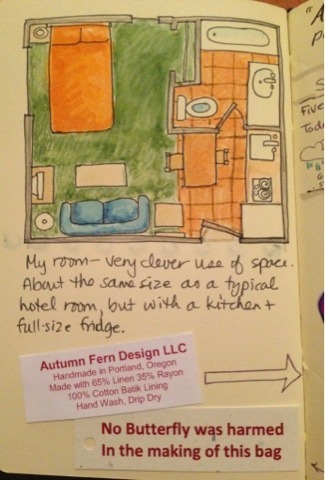 My room – very clever use of space.
About the same size as a typical
hotel room, but with a kitchen +
full-size fridge.
Autumn Fern Design LLC
Handmade in Portland, Oregon
Made with 65% Linen 35% Rayon
100% Cotton Batik Lining
Hand Wash, Drip Dry
No Butterfly was harmed
In the making of this bag
Five